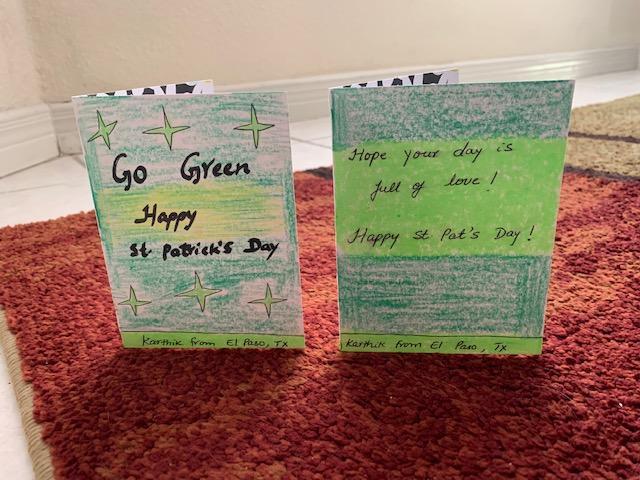 Go Green
Happy
St Patrick's Day
Karthik from El Paso, TX
Hope your day is
full of love!
Happy St Pat's Day!
Karthik from El Paso, TX